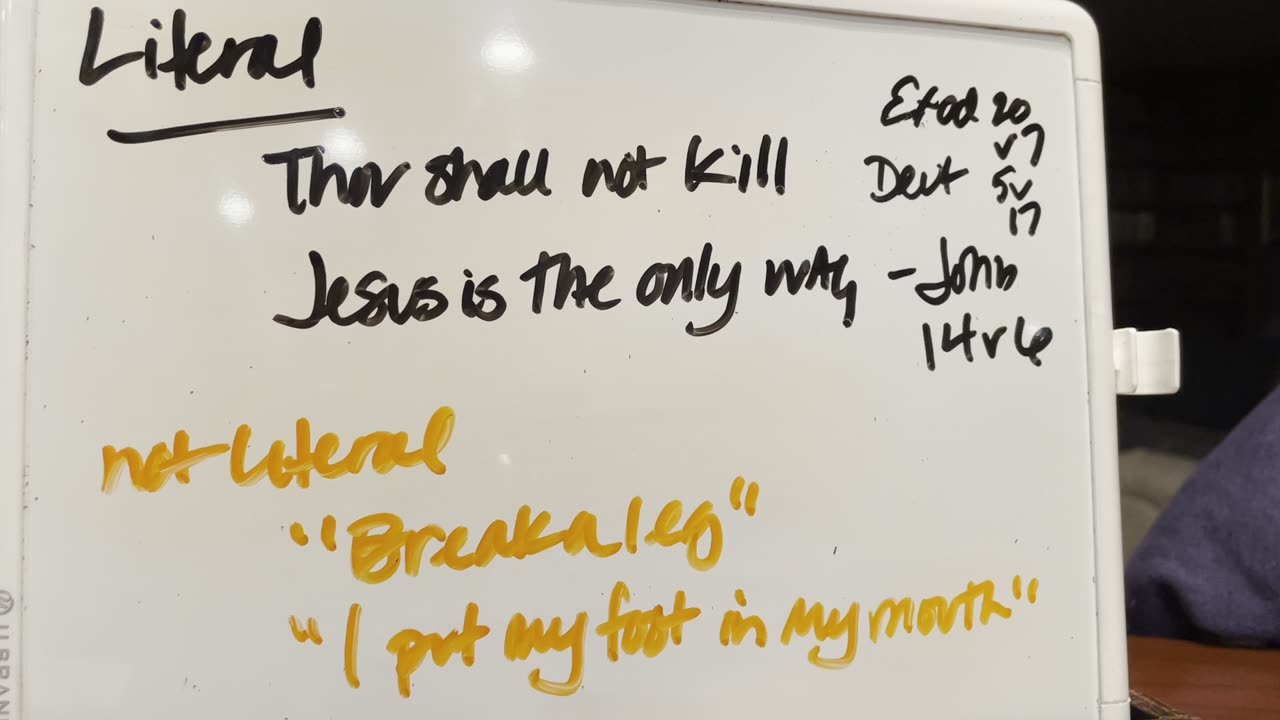 Literal
Thou shall not Kill
Exod 20
v7
Deut 5v
17
Jesus is the only way - John
14 v 6
not Literal
"Break a leg"
"I put my foot in my mouth"